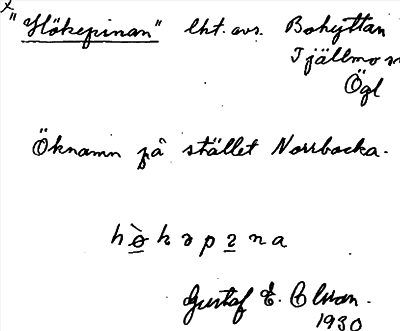 x
"Hökepinan" lht. avs. Bohyttan
Tjällmo sn
Ögl
Öknamn på stället Norrbacka.
Gustaf E. Olsson.
1930